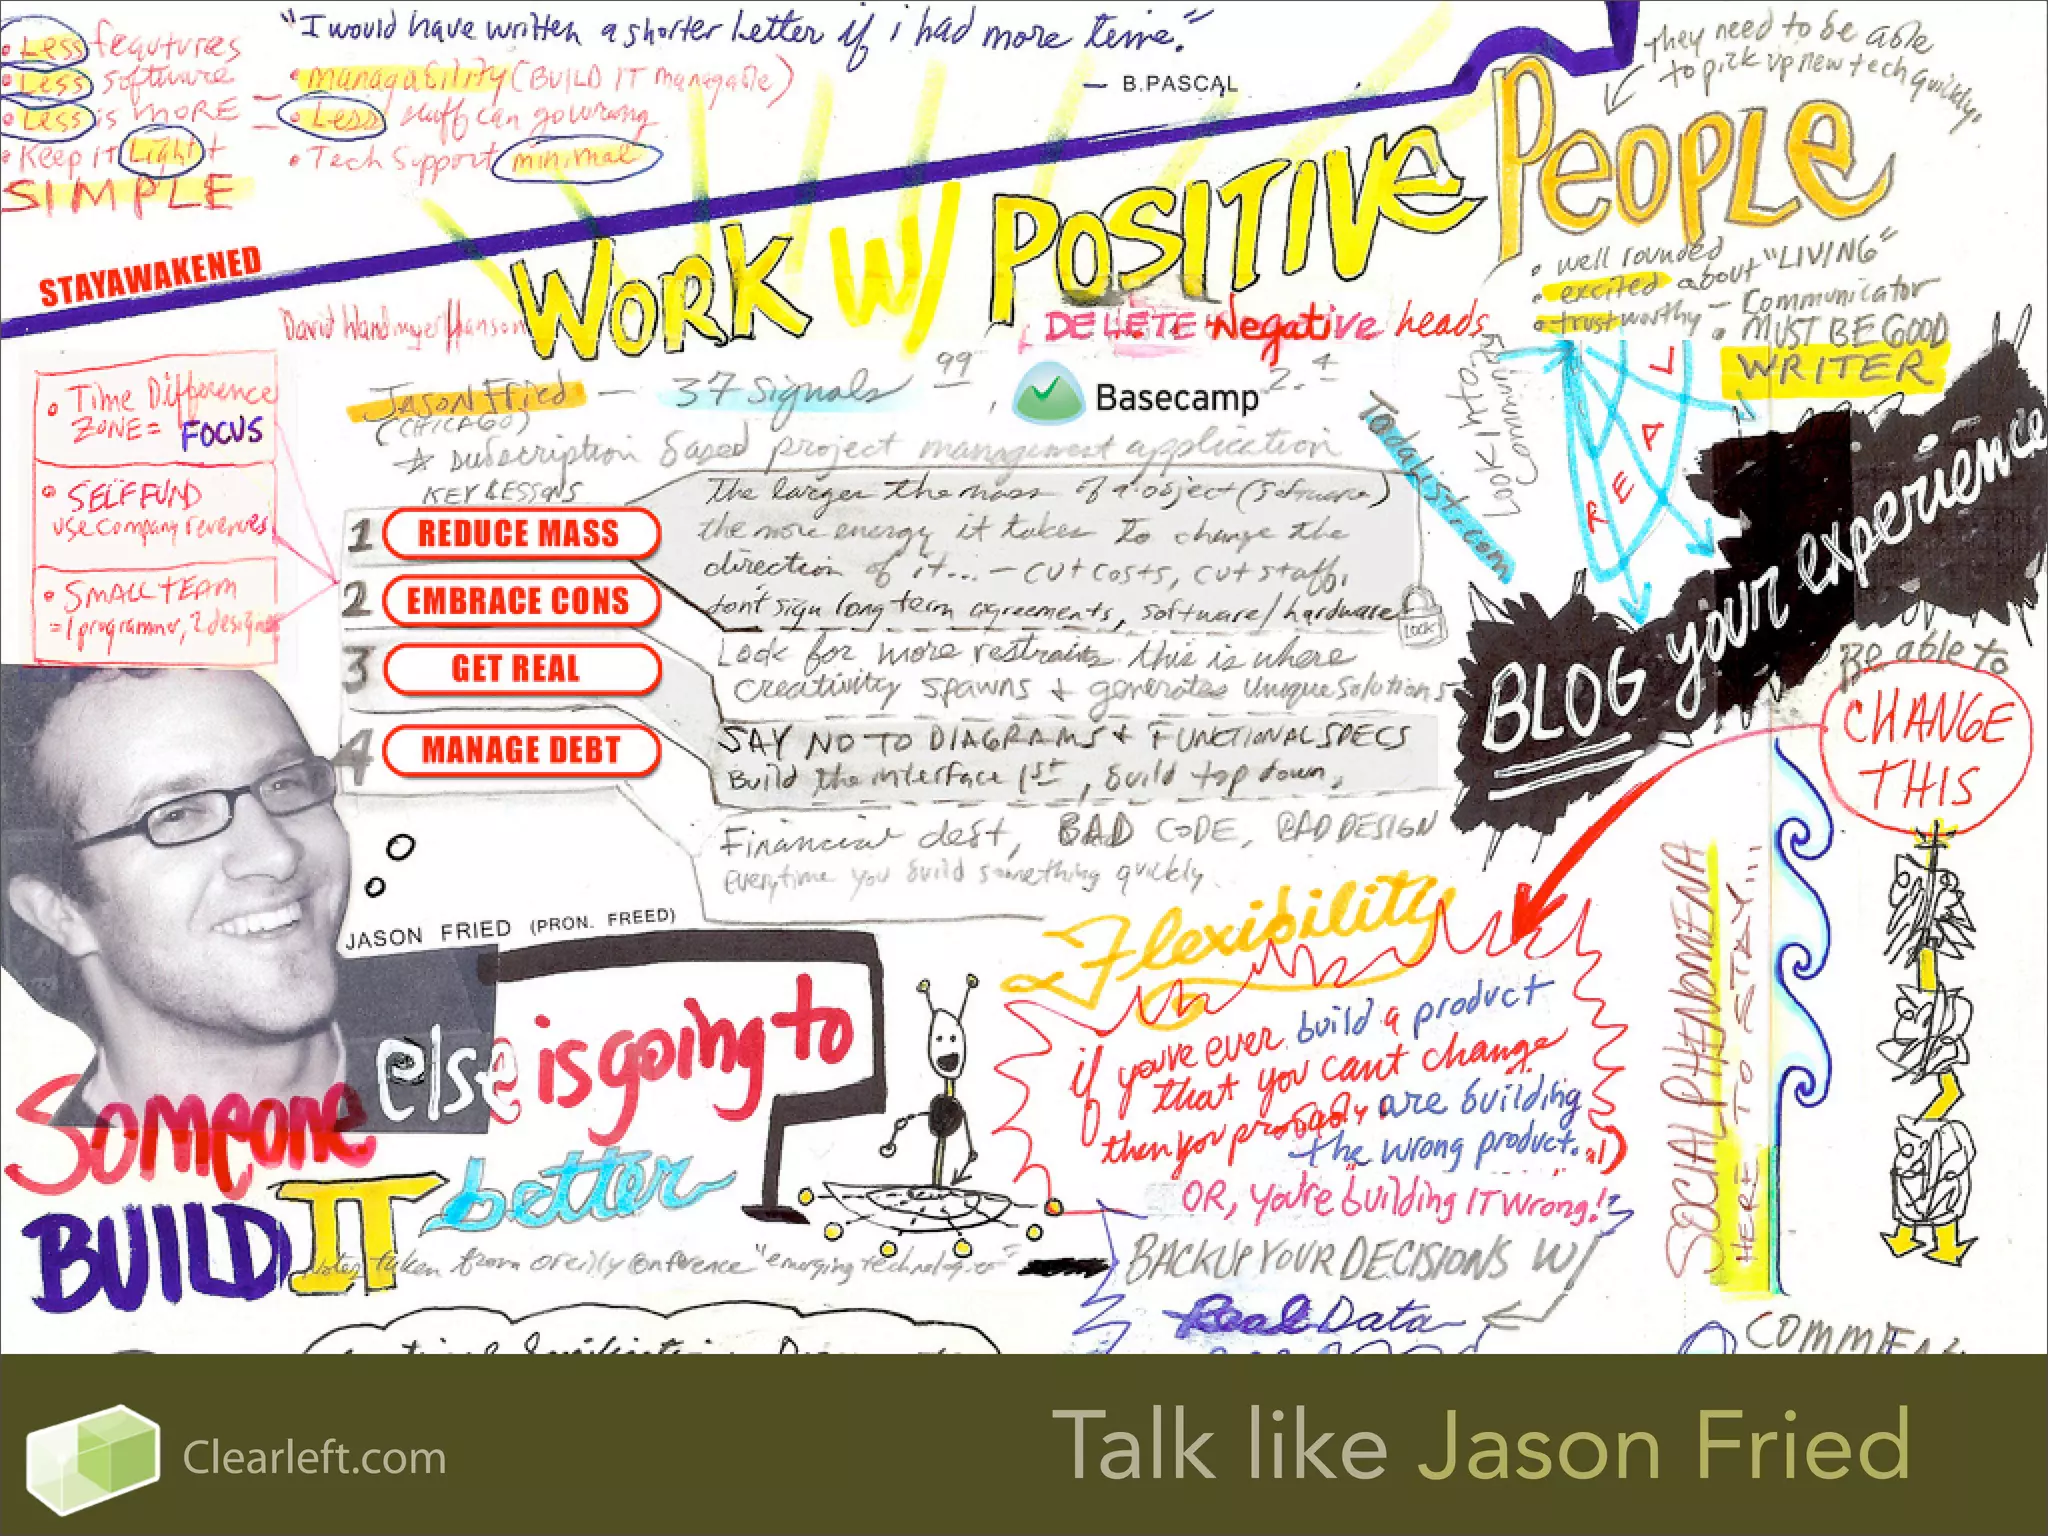 • Less feautures
• Less software
• Less is MORE
• Keep it Light +
SIMPLE
"I would have written a shorter letter if i had more time."
— B.PASCAL
• managability (BUILD IT managable)
• Less stuff can go wrong
• Tech Support minimal
they need to be able
to pick up new tech quickly.
WORK W/ POSITIVE PEOPLE
STAYAWAKENED
DELETE Negative heads
• well rounded
• excited about "LIVING"
• trustworthy — Communicator
• MUST BE GOOD
WRITER
David Handmyer Hanson
Jason Fried — 37 signals
(CHICAGO)
99
Basecamp
2.4
☆ subscription based project management application
Tadalist.com
Look 4
REAL
• Time Difference
ZONE = FOCUS
• SELF FUND
use company revenues
• SMALL TEAM
= 1 programmer, 2 designer
KEY LESSONS
1 REDUCE MASS
2 EMBRACE CONS
3 GET REAL
4 MANAGE DEBT
The larger the mass of a object (software)
the more energy it takes to change the
direction of it... — cut costs, cut staff,
don't sign long term agreements, software/hardware
LOCK
Look for more restraints this is where
creativity spawns + generates unique solutions
SAY NO TO DIAGRAMS + FUNCTIONAL SPECS
Build the interface 1st, build top down,
Financial dest, BAD CODE, BAD DESIGN
everytime you build something quickly
BLOG your experience
Be able to
CHANGE
THIS
JASON FRIED (PRON. FREED)
Someone else is going to
BUILD IT better
Notes taken from oreilly conference "emerging technologies"
Flexibility
if you're ever build a product
that you can't change
then you probably are building
the wrong product.
OR, you're building IT wrong!
BACKUP YOUR DECISIONS W/
Real Data
SOCIAL PHENOMENA
HERE TO STAY...
Clearleft.com
Talk like Jason Fried